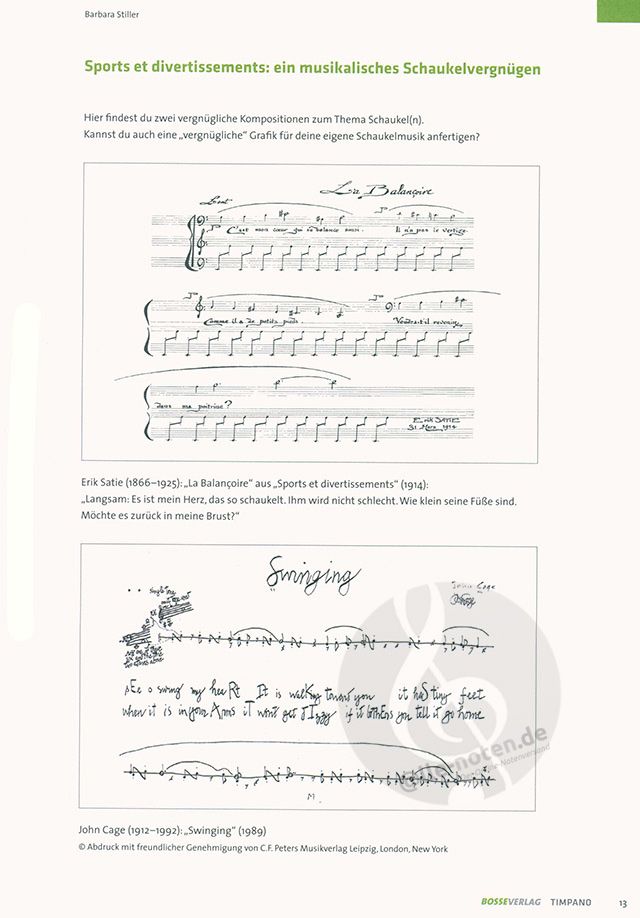 Barbara Stiller
Sports et divertissements: ein musikalisches Schaukelvergnügen
Hier findest du zwei vergnügliche Kompositionen zum Thema Schaukel(n).
Kannst du auch eine „vergnügliche“ Grafik für deine eigene Schaukelmusik anfertigen?
La Balançoire
Lent
C'est mon cœur qui se balance ainsi. Il n'a pas le vertige.
Comme il a de petits pieds. Voudra-t'il revenir
dans ma poitrine?
Erik SATIE
31 Mars 1914
Erik Satie (1866–1925): „La Balançoire“ aus „Sports et divertissements“ (1914):
„Langsam: Es ist mein Herz, das so schaukelt. Ihm wird nicht schlecht. Wie klein seine Füße sind.
Möchte es zurück in meine Brust?“
Swinging
John Cage
sEE o swing my heaRt It is walking towards you it has tiny feet
when it is in your Arms iT won't get dIzzy if it bothers you tell it go home
M.
John Cage (1912–1992): „Swinging“ (1989)
© Abdruck mit freundlicher Genehmigung von C.F. Peters Musikverlag Leipzig, London, New York
BOSSEVERLAG TIMPANO 13